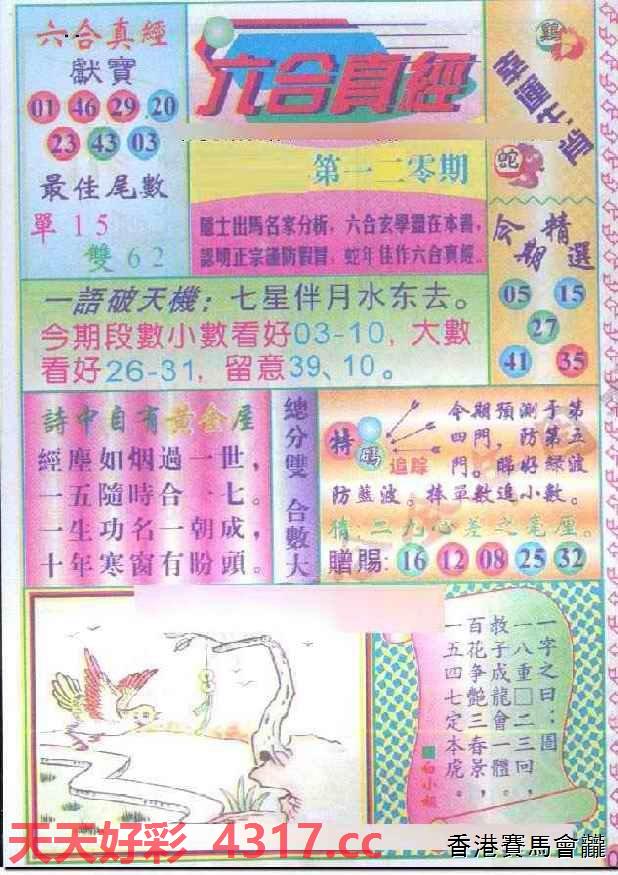 六合真經
獻寶
01 46 29 20
23 43 03
最佳尾數
單 1 5
雙 6 2
六合真經
第一二零期
隱士出馬名家分析，六合玄學盡在本書，
認明正宗謹防假冒，蛇年佳作六合真經。
鷄
蛇
今期精選
05 15
27
41 35
一語破天機：七星伴月水东去。
今期段數小數看好03-10，大數
看好26-31，留意39、10。
詩中自有黃金屋
經塵如烟過一世，
一五隨時合一七。
一生功名一朝成，
十年寒窗有盼頭。
總分雙 合數大
特碼
追踪
今期預測于第
四門，防第五
門。睇好緑波
防藍波。捧單數追小數。
猜:二九心差之毫厘。
贈賜: 16 12 08 25 32
一字之曰：圖
一八重□二三回，
救子成龍會一體。
百花争艷三春景，
一五四七定本虎。
■白小姐
天天好彩 4317.cc
香港賽馬會